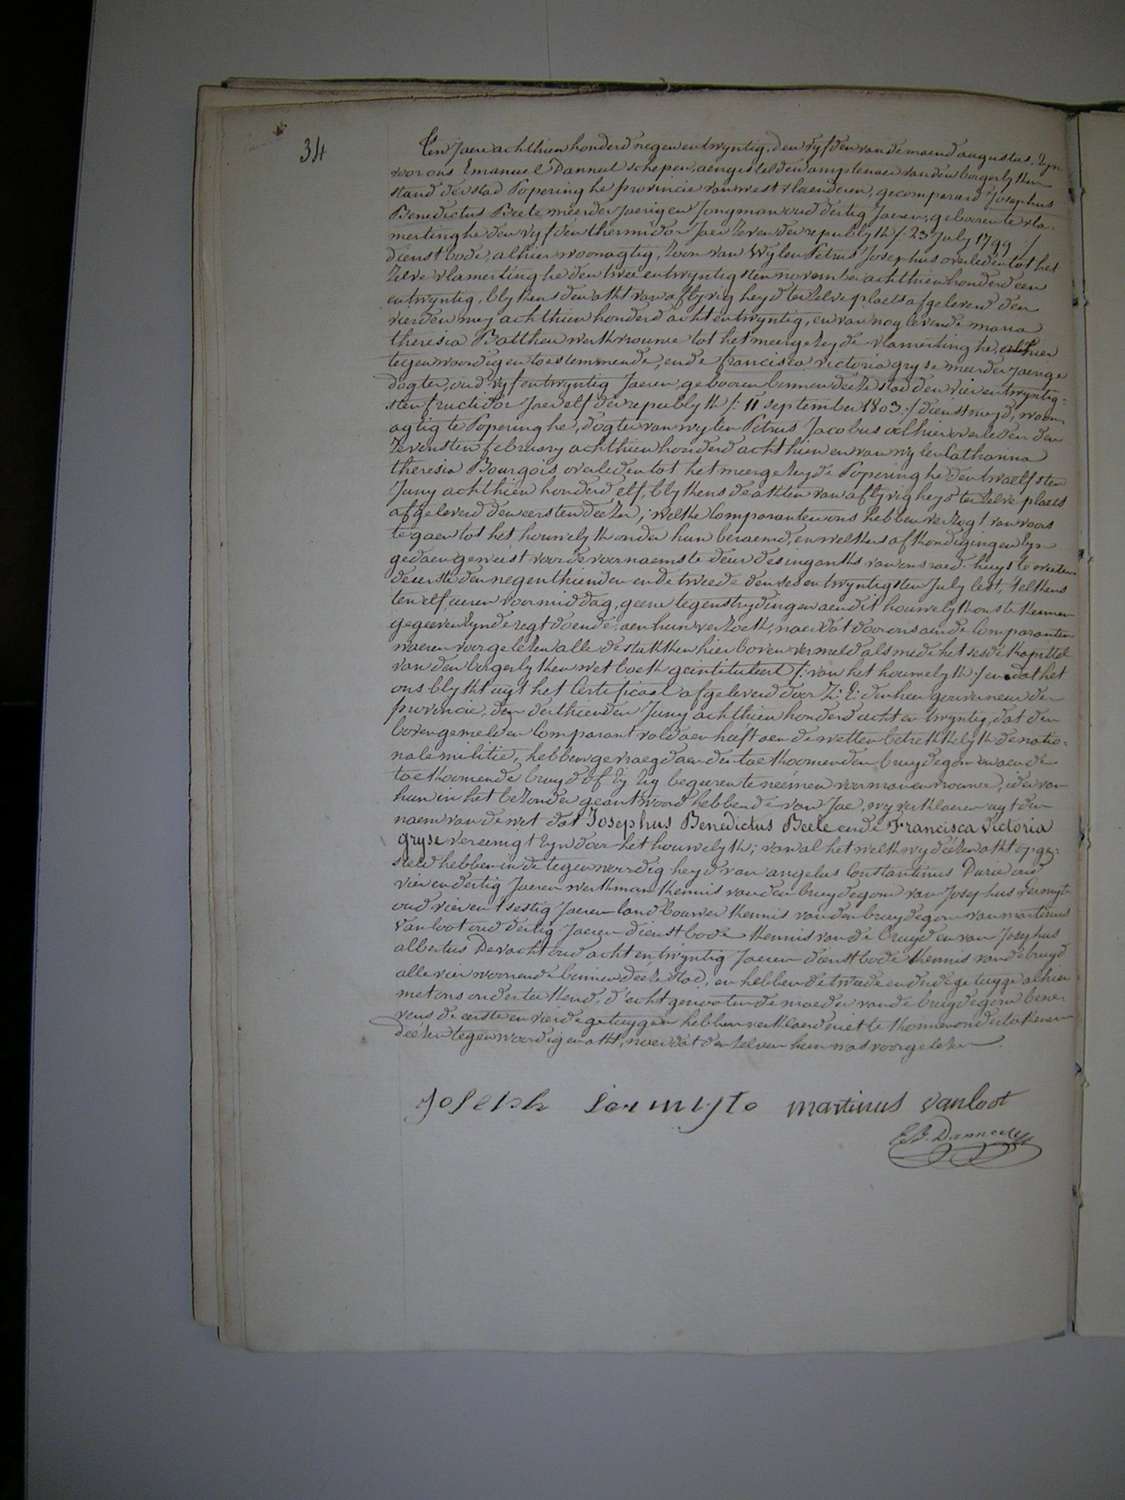 34
Ten Jaere achthien honderd negen en twyntig, den vyfden van de maend augustus, Zyn
voor ons Emanuel Danneel schepen, aengestelden amptenaer van den borgerlyken
stand der stad Poperinghe provincie van westvlaenderen, gecompareerd Josephus
Benedictus Beele meerderjaerigen Jongman oud dertig Jaeren, gebooren te vla-
mertinghe den vyfden thermidor Jaer Zeven der republyk /: 23 July 1799 :/
dienstbode, alhier woonagtig, Zoon van Wylen Petrus Josephus overleden tot het
Zelve vlamertinghe den twee en twyntigsten november achthien honderd een
en twyntig, blykens den akt van aflyvigheyd ter Zelve plaets afgeleverd den
vierden mey achthien honderd acht en twyntig, en van nog levende maria
theresia Battheu werkvrouwe tot het meergezeyde vlamertinghe, alhier
tegenwoordig en toestemmende, ende francisca victoria gryse meerderjaerige
dogter, oud vyf en twyntig Jaeren, gebooren binnen deeze stad den vier en twyntig-
sten fructidor Jaer elf der republyk /: 11 september 1803 :/ dienstmeyd, woon-
agtig te Poperinghe, dogter van wylen Petrus Jacobus alhier overleden den
Zevensten february achthien honderd achthien en van wylen Catharina
theresia Bourgois overleden tot het meergezeyde Poperinghe den twaelfsten
Juny achthien honderd elf, blykens de akten van aflyvigheyd ter Zelve plaets
afgeleverd den eersten deezer; welke Comparanten ons hebben verzogt van voors
te gaen tot het houwelyk onder hun beraemd, en welkers afkondigingen Zyn
gedaen geweest voor de voornaemste deur des ingangs van ons raedhuys te weeten
de eerste den negenthienden en de tweede den ses en twyntigsten July lest, telkens
ten elf ueren voormiddag, geene tegenstrydingen aen dit houwelyk ons te kennen
gegeven Zynde regt doende, aen hun verzoek, naer dat door ons aen de Comparanten
waeren voorgelezen alle de stukken hier boven vermeld als mede het sesde kapittel
van den borgerlyken wetboek geintituleert /: van het houwelyk :/ en dat het
ons blykt uyt het Certificaet afgeleverd door Z: E: den heer gouverneur der
provincie, den derthienden Juny achthien honderd acht en twyntig, dat den
bovengemelden Comparant voldaen heeft aen de wetten betrekkelyk de natio-
nale militie, hebben gevraegd aen den toekoomenden bruydegom en aen de
toekoomende bruyd of Zy Zig begeeren te neemen voor man en vrouwe, ider van
hun in het bezonder geantwoord hebbende van Jae, wy verklaeren uyt den
naem van de wet dat Josephus Benedictus Beele ende Francisca Victoria
gryse vereenigt Zyn door het houwelyk; van al het welk wy deezen akt opge-
steld hebben in de tegenwoordigheyd van angelus Constantinus Durie oud
vier en dertig Jaeren werkman kennis van den bruydegom van Josephus vermyt
oud vier en t sestig Jaeren landbouwer kennis van den bruydegom van martinus
Vanloot oud dertig Jaeren dienstbode kennis van de bruyd en van Josephus
albertus Devacht oud acht en twyntig Jaeren dienstbode kennis van de bruyd
alle vier woonende binnen deeze stad, en hebben de tweede en derde getuyge alhier
met ons onderteekend, d'echtgenooten de moeder van de bruydegom bene-
vens de eerste en vierde getuygen hebben verklaerd niet te konnen onderteekenen
deezen tegenwoordigen akt, naer dat den zelven hun was voorgelezen.
Joseph Martinus Vanloot
E.B. Danneel